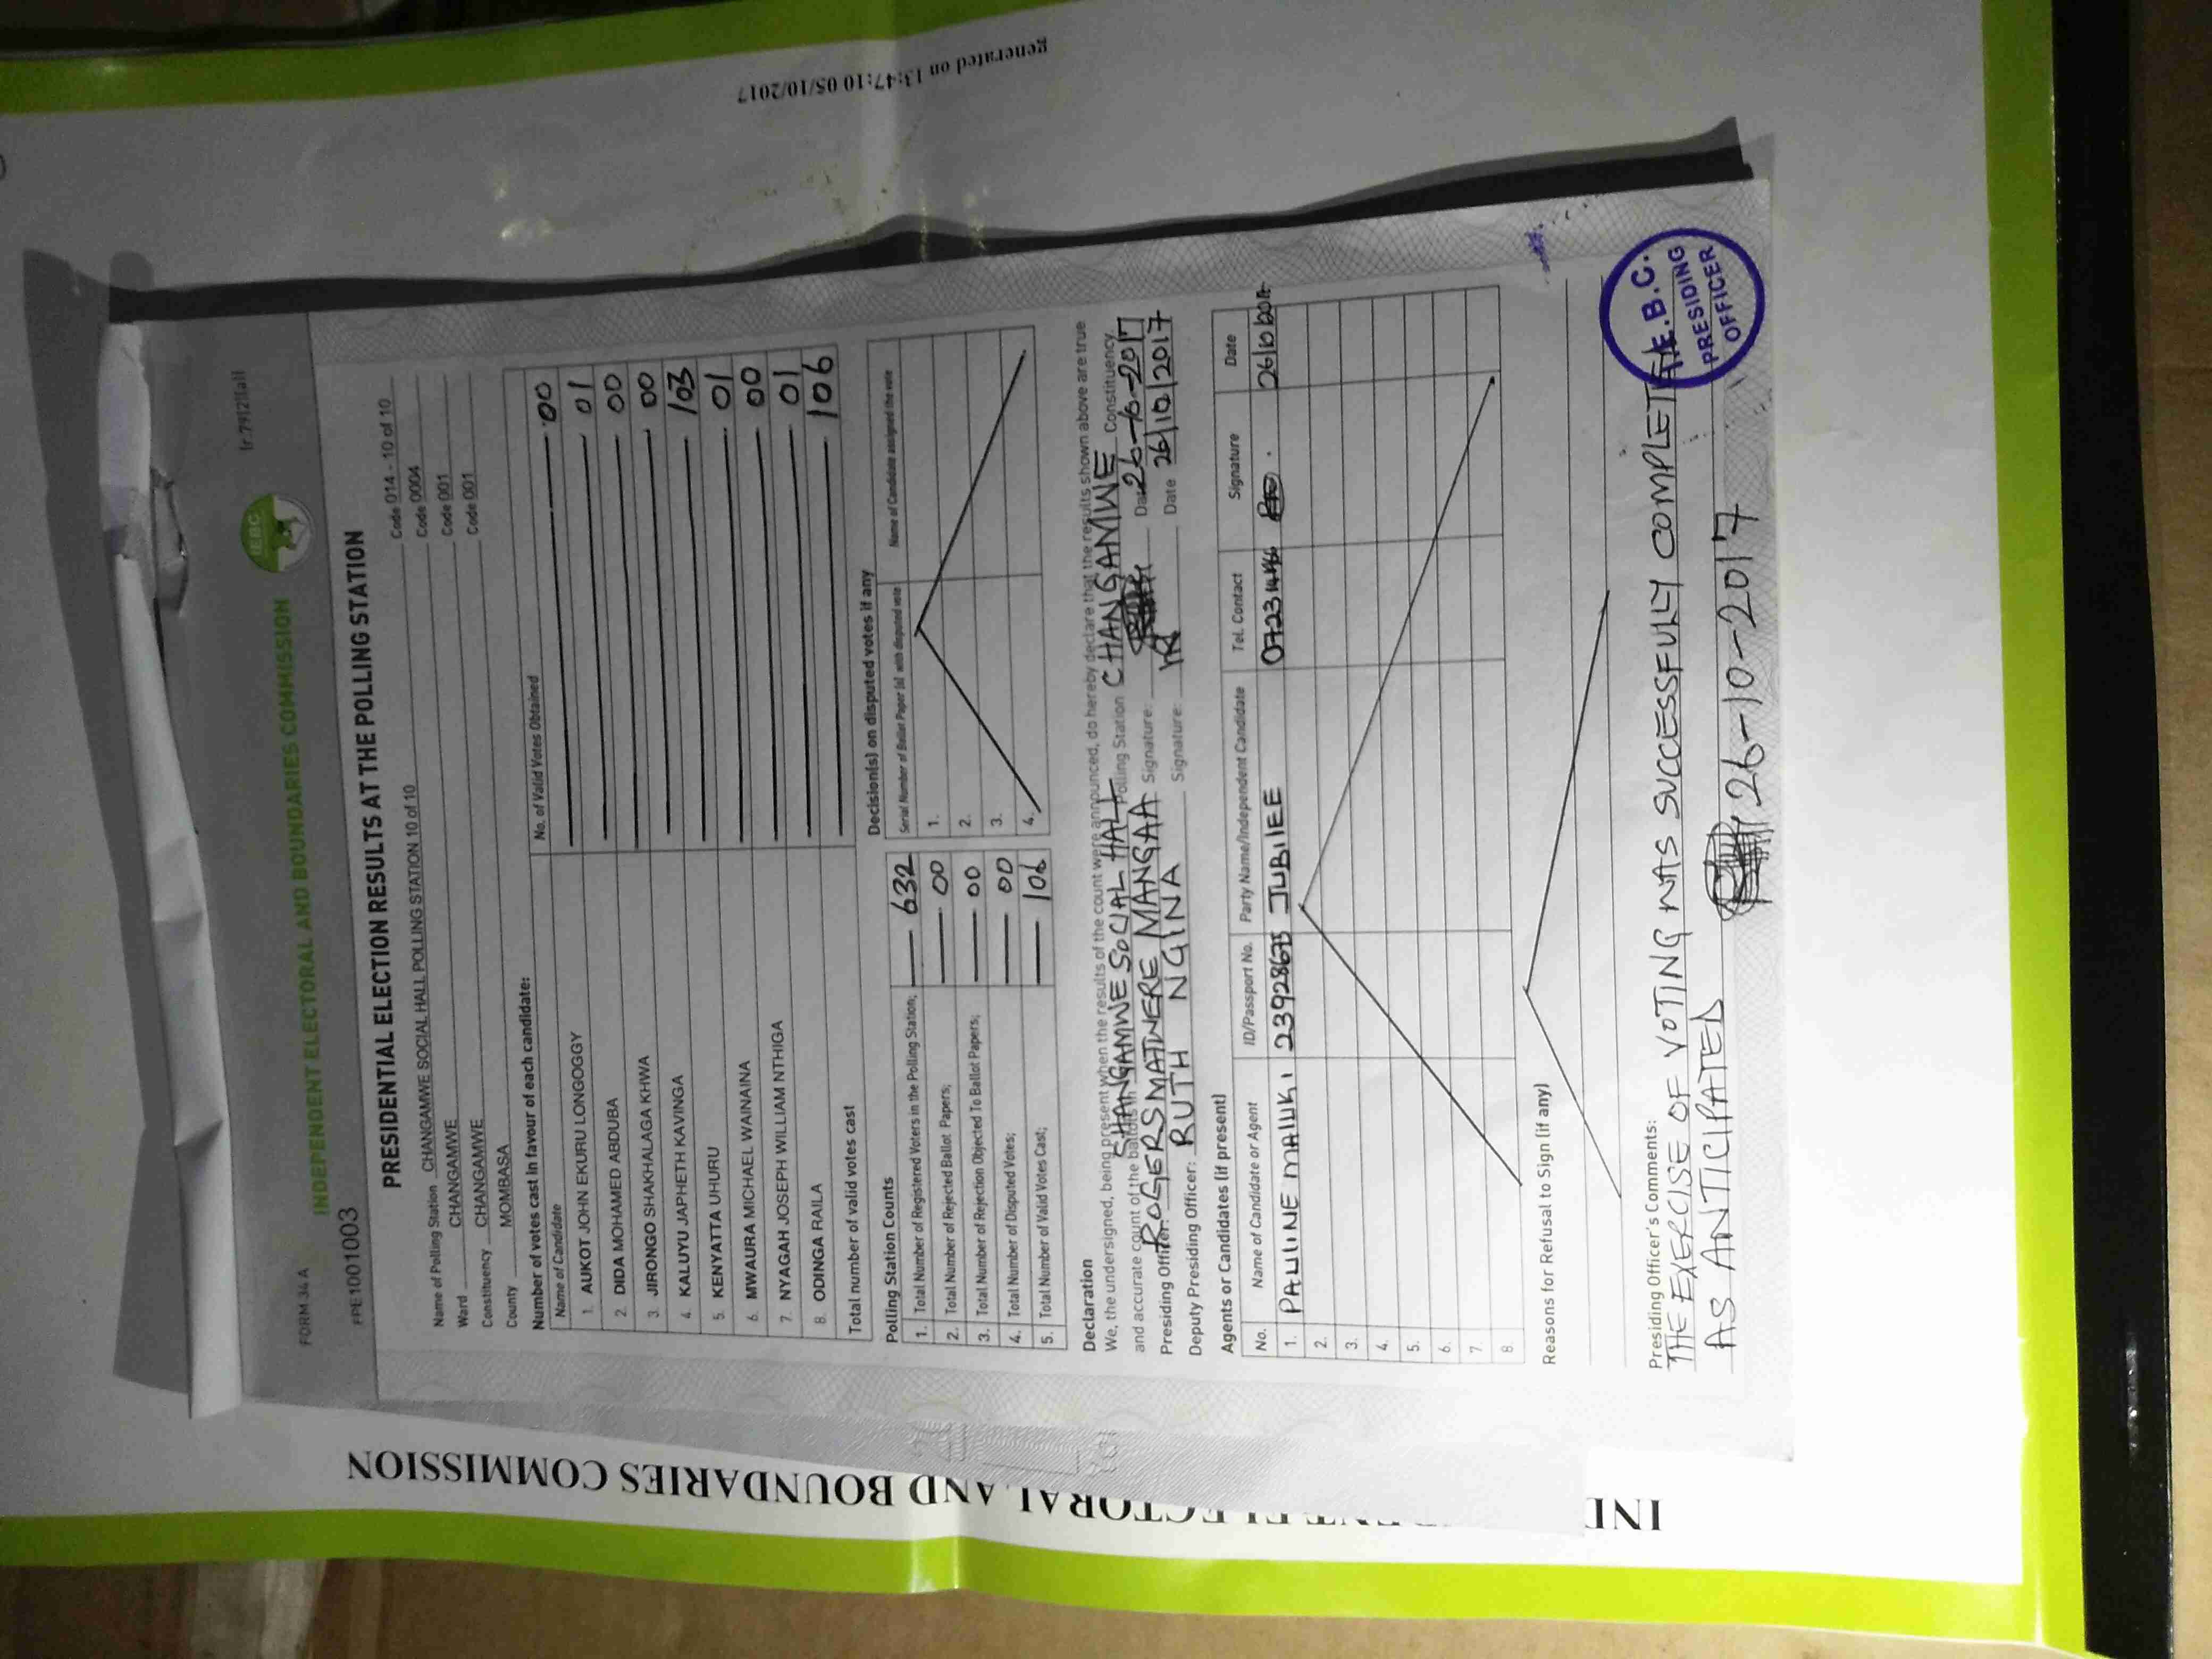 generated on 13:47:10 05/10/2017
FORM 34 A
INDEPENDENT ELECTORAL AND BOUNDARIES COMMISSION
IEBC
FPE1001003
PRESIDENTIAL ELECTION RESULTS AT THE POLLING STATION
Name of Polling Station CHANGAMWE SOCIAL HALL POLLING STATION 10 of 10 Code 014 - 10 of 10
Ward CHANGAMWE Code 0004
Constituency CHANGAMWE Code 001
County MOMBASA Code 001
Number of votes cast in favour of each candidate:
Name of Candidate No. of Valid Votes Obtained
1. AUKOT JOHN EKURU LONGOGGY 00
2. DIDA MOHAMED ABDUBA 01
3. JIRONGO SHAKHALAGA KHWA 00
4. KALUYU JAPHETH KAVINGA 00
5. KENYATTA UHURU 103
6. MWAURA MICHAEL WAINAINA 01
7. NYAGAH JOSEPH WILLIAM NTHIGA 00
8. ODINGA RAILA 01
Total number of valid votes cast 106
Polling Station Counts
1. Total Number of Registered Voters in the Polling Station; 632
2. Total Number of Rejected Ballot Papers; 00
3. Total Number of Rejection Objected To Ballot Papers; 00
4. Total Number of Disputed Votes; 00
5. Total Number of Valid Votes Cast; 106
Decision(s) on disputed votes if any
Serial Number of Ballot Paper (s) with disputed vote Name of Candidate assigned the vote
1.
2.
3.
4.
Declaration
We, the undersigned, being present when the results of the count were announced, do hereby declare that the results shown above are true
and accurate count of the ballots in CHANGAMWE SOCIAL HALL Polling Station CHANGAMWE Constituency
Presiding Officer: ROGERS MATWERE MANGAA Signature: Date 26-10-2017
Deputy Presiding Officer: RUTH NGINA Signature: Date 26/10/2017
Agents or Candidates (if present)
No. Name of Candidate or Agent ID/Passport No. Party Name/Independent Candidate Tel. Contact Signature Date
1. PAULINE MAIUKI 23928675 JUBILEE 26/10/2017
2.
3.
4.
5.
6.
7.
8.
Reasons for Refusal to Sign (if any)
Presiding Officer's Comments:
THE EXERCISE OF VOTING WAS SUCCESSFULLY COMPLETE
AS ANTICIPATED 26-10-2017
I.E.B.C.
PRESIDING
OFFICER
AND BOUNDARIES COMMISSION